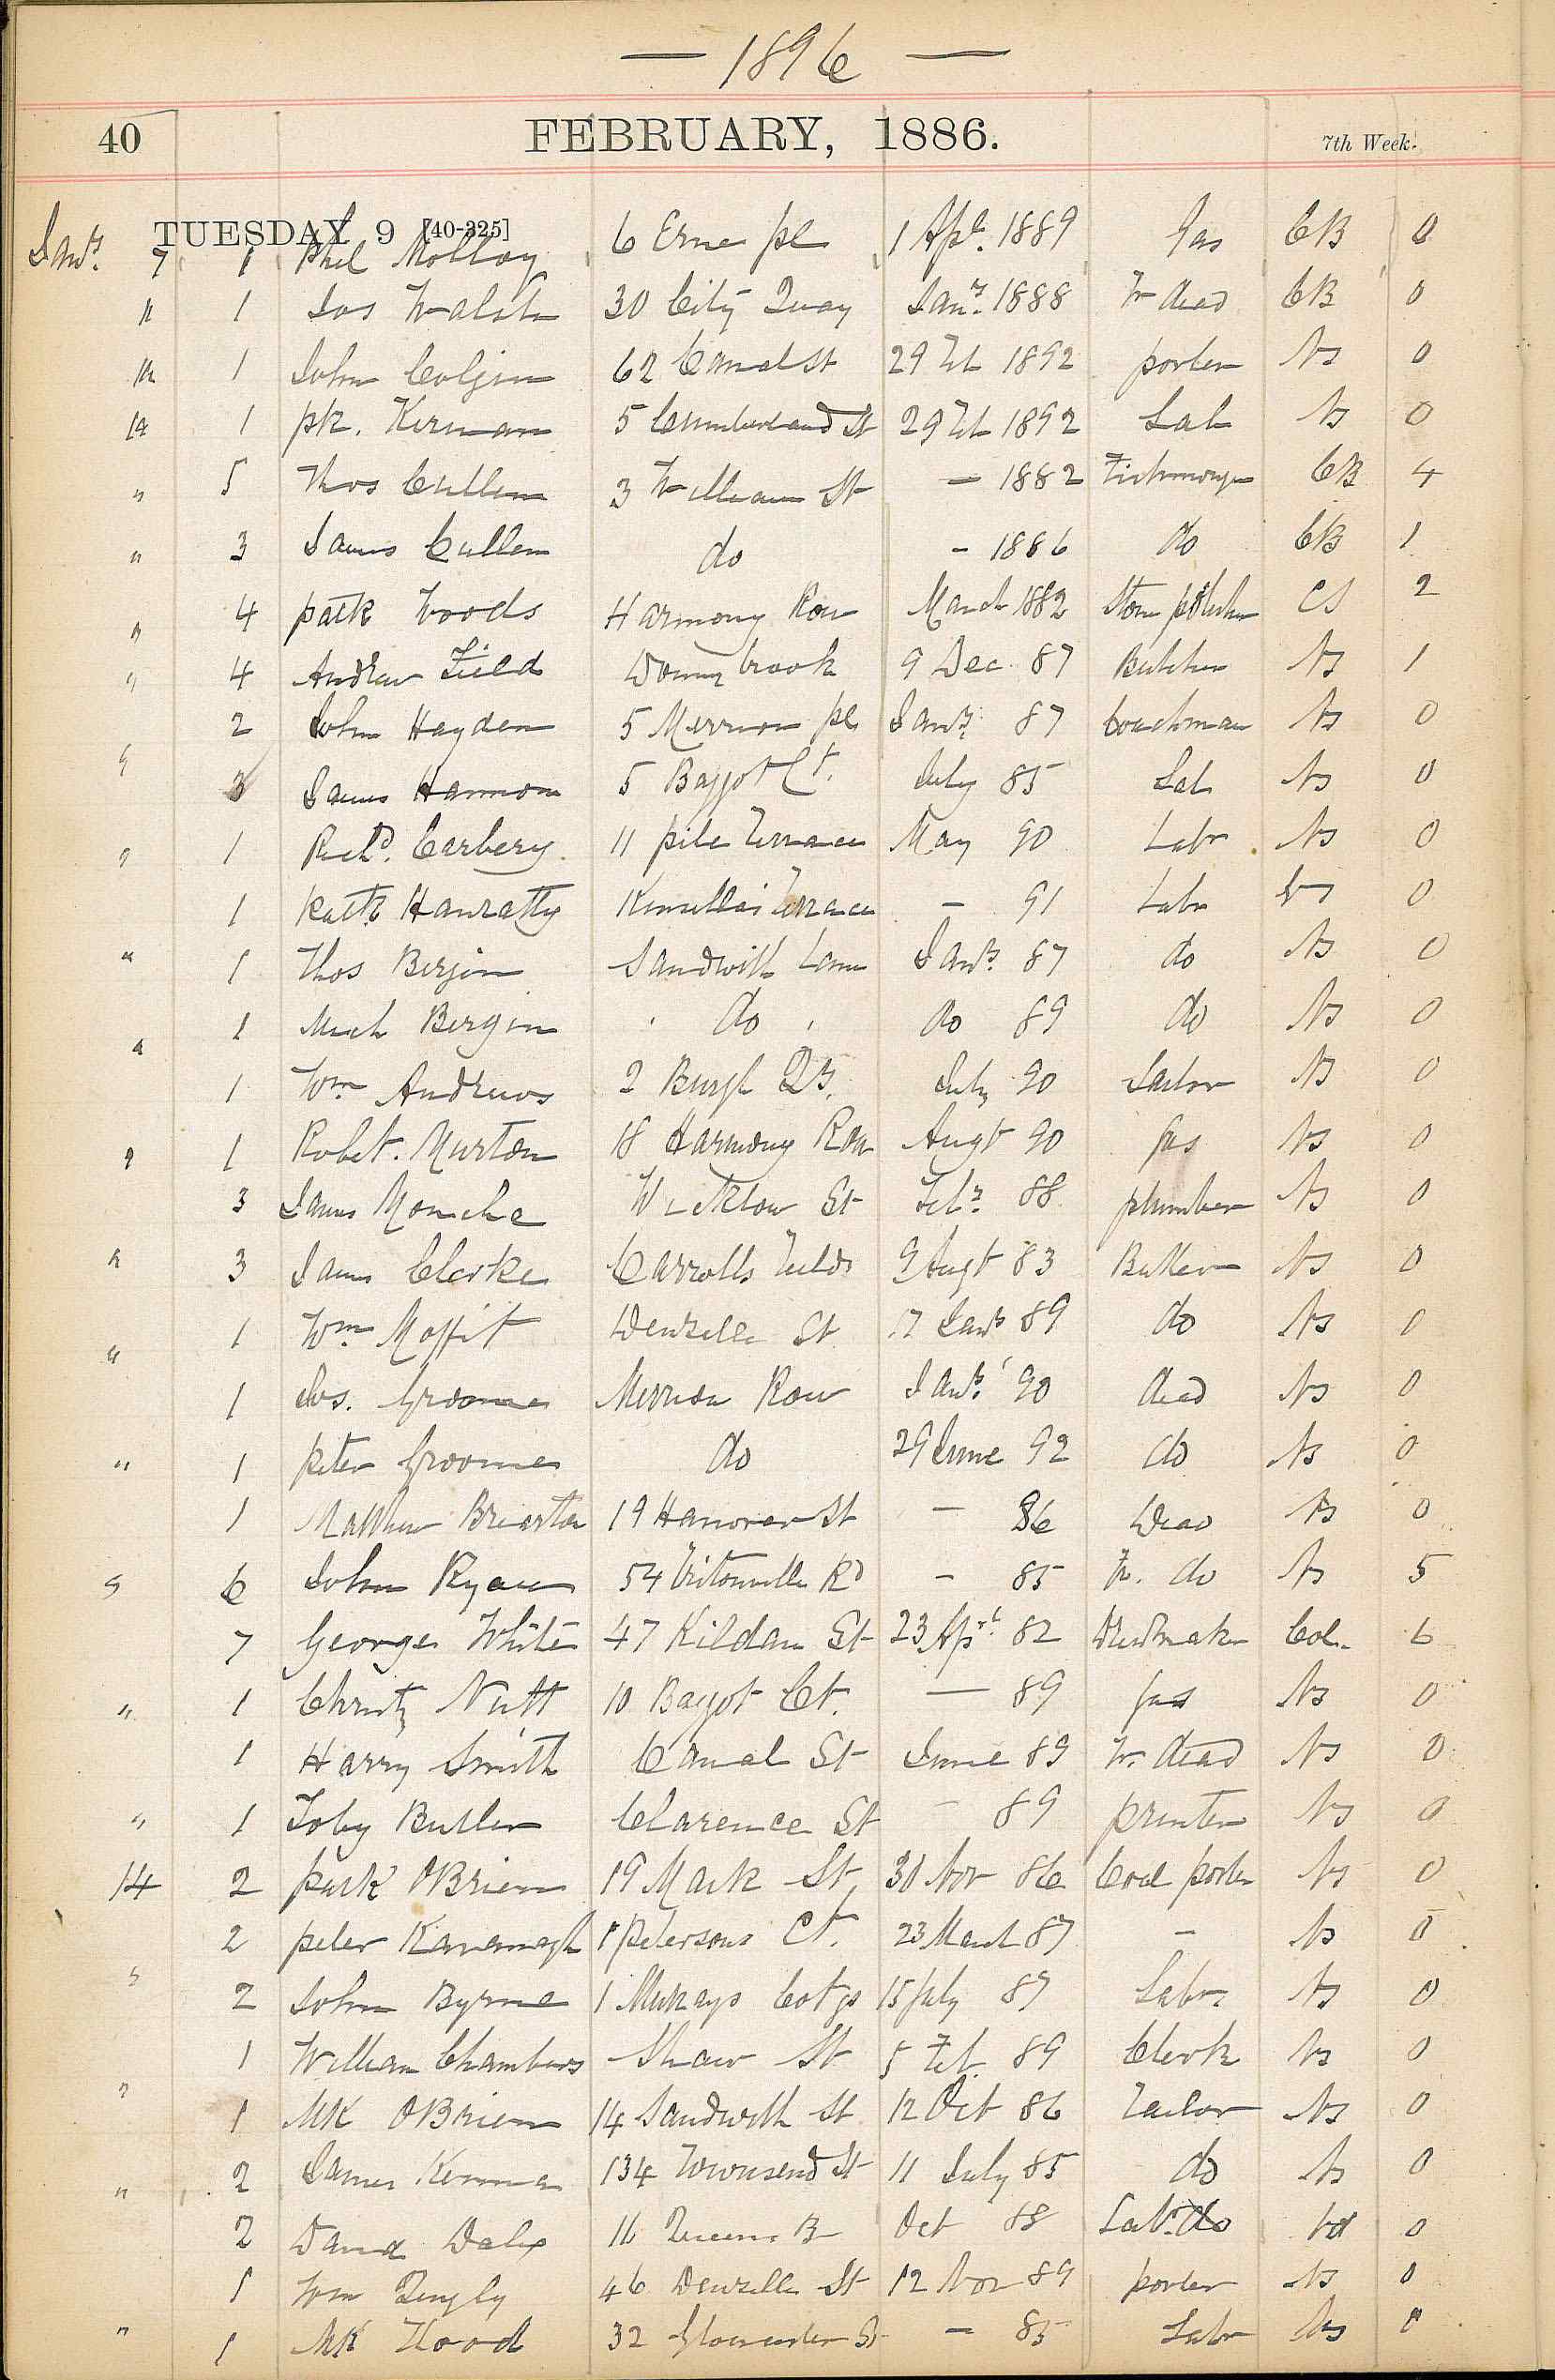 — 1896 —
40 FEBRUARY, 1886. 7th Week.
TUESDAY 9 [40-325]
Jany. 7 1 Phil Molloy 6 Erne pl 1 Apl. 1889 Gas CB 0
" 1 Jos Walsh 30 City Quay Jany. 1888 Fr dead CB 0
1 John Colgin 62 Canal St 29 Feb 1892 porter NS 0
14 1 pk. Kernan 5 Cumberland St 29 Feb 1892 Lab NS 0
" 5 Thos Cullen 3 William St — 1882 Fishmonger CB 4
" 3 James Cullen do - 1886 do CB 1
" 4 patk Woods Harmony Row March 1882 Stone polisher CS 2
" 4 Andrew Field Donnybrook 9 Dec 87 Butcher NS 1
2 John Hayden 5 Merrion pl Jany 87 Coachman NS 0
" 3 James Hannon 5 Baggot Ct. July 85 Lab NS 0
" 1 Richd. Carbery 11 pile Terrace May 90 Labr NS 0
1 Patk Hanratty Kinsellas Terrace - 91 Labr NS 0
" 1 Thos Bergin Sandwith Lane Jany. 87 do NS 0
1 Mich Bergin " do " do 89 do NS 0
" 1 Wm Andrews 2 Burgh Qy. July 90 Sailor NS 0
" 1 Robt. Murton 18 Harmony Row Augt 90 Gas NS 0
3 James Wicklow St Feby 88 plumber NS 0
" 3 James Clarke Carrolls Fields 9 Augt 83 Butler NS 0
1 Wm Moffit Denzille St 17 Jany 89 do NS 0
" 1 Jos. Groome Merrion Row Jany. 90 dead NS 0
" 1 peter Groome do 29 June 92 do NS 0
1 Matthew Brierton 19 Hanover St — 86 Dead NS 0
" 6 John Ryan 54 Tritonville Rd - 85 Fr. do NS 5
7 George White 47 Kildare St 23 Apl. 82 Col. 6
" 1 Christy Nutt 10 Bagot Ct. — 89 Gas NS 0
1 Harry Smith Canal St June 89 Fr. dead NS 0
" 1 Toby Butler Clarence St - 89 printer NS 0
14 2 patk OBrien 19 Mark St 30 Nov 86 Coal porter NS 0
2 peter Kavanagh 1 petersons Ct. 23 March 87 - NS 0
" 2 John Byrne 1 Murrays Cotgs 15 July 87 Labr. NS 0
1 William Chambers Shaw St 5 Feb 89 Clerk NS 0
" 1 MK OBrien 14 Sandwith St 12 Oct 86 Tailor NS 0
" 2 James 134 Townsend St 11 July 85 do NS 0
2 David Daly 16 Queens Oct 88 Labr. do 0
1 Wm 46 Denzille St 12 Nov 89 porter NS 0
" 1 MK Hood 32 Gloucester St — 85 Labr NS 0